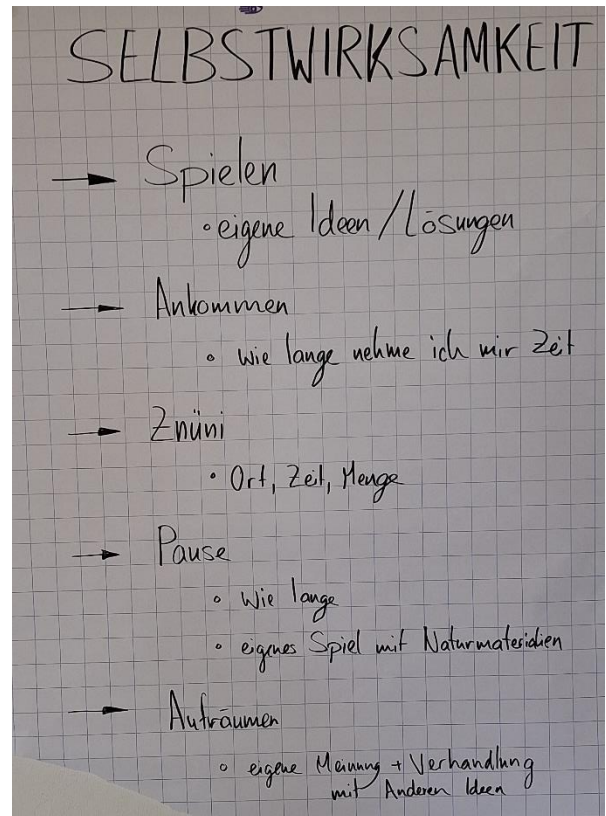 SELBSTWIRKSAMKEIT
→ Spielen
• eigene Ideen / Lösungen
→ Ankommen
• wie lange nehme ich mir Zeit
→ Znüni
• Ort, Zeit, Menge
→ Pause
• Wie lange
• eigenes Spiel mit Naturmaterialien
→ Aufräumen
• eigene Meinung + Verhandlung
mit Anderen Ideen